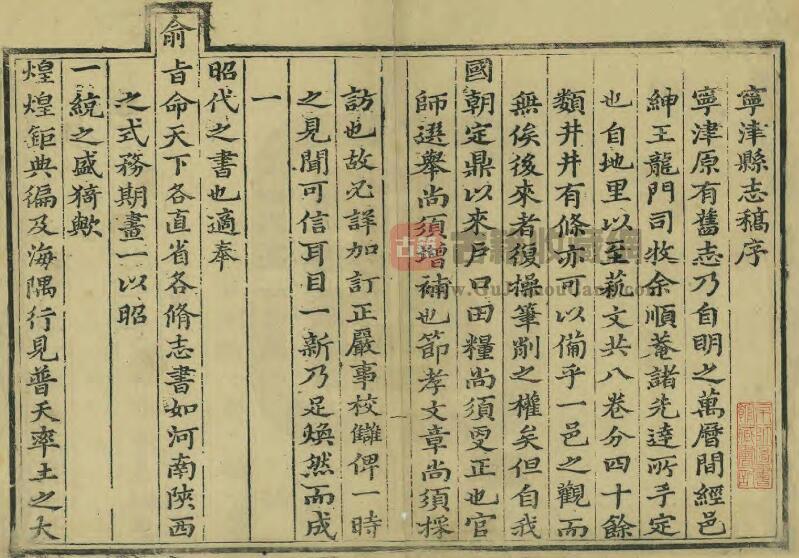 寧津縣志稿序
寧津原有舊志乃自明之萬曆間經邑
紳王龍門司牧余順菴諸先達所手定
也自地里以至藝文共八卷分四十餘
類井井有條亦可以備乎一邑之觀而
無俟後來者復操筆削之權矣但自我
國朝定鼎以來戶口田糧尚須叓正也官
師選舉尚須增補也節孝文章尚須採
訪也故必詳加訂正嚴事校讎俾一時
之見聞可信耳目一新乃足煥然而成
一
昭代之書也適奉
俞旨命天下各直省各脩志書如河南陝西
之式務期畫一以昭
一統之盛猗歟
煌煌鉅典徧及海隅行見普天率土之大
古籍